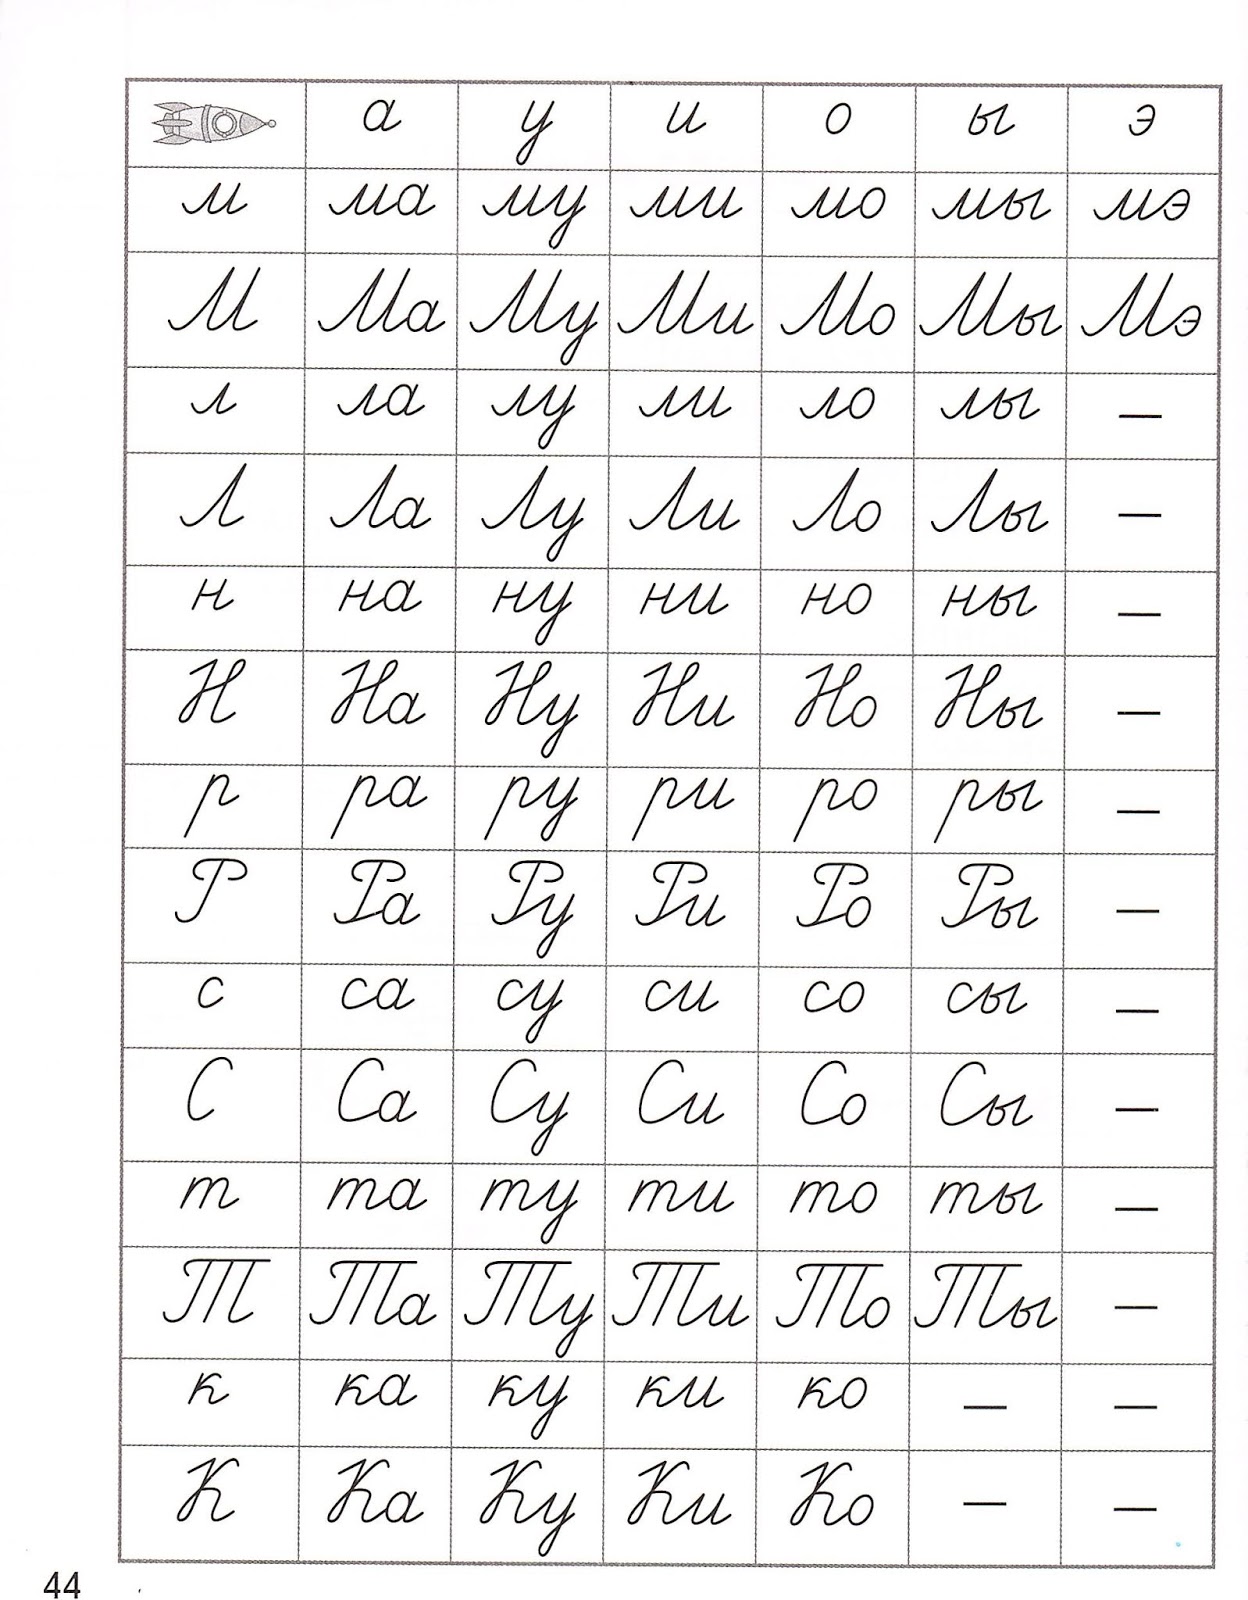 а у и о ы э
м ма му ми мо мы мэ
М Ма Му Ми Мо Мы Мэ
л ла лу ли ло лы —
Л Ла Лу Ли Ло Лы —
н на ну ни но ны —
Н На Ну Ни Но Ны —
р ра ру ри ро ры —
Р Ра Ру Ри Ро Ры —
с са су си со сы —
С Са Су Си Со Сы —
т та ту ти то ты —
Т Та Ту Ти То Ты —
к ка ку ки ко — —
К Ка Ку Ки Ко — —
44